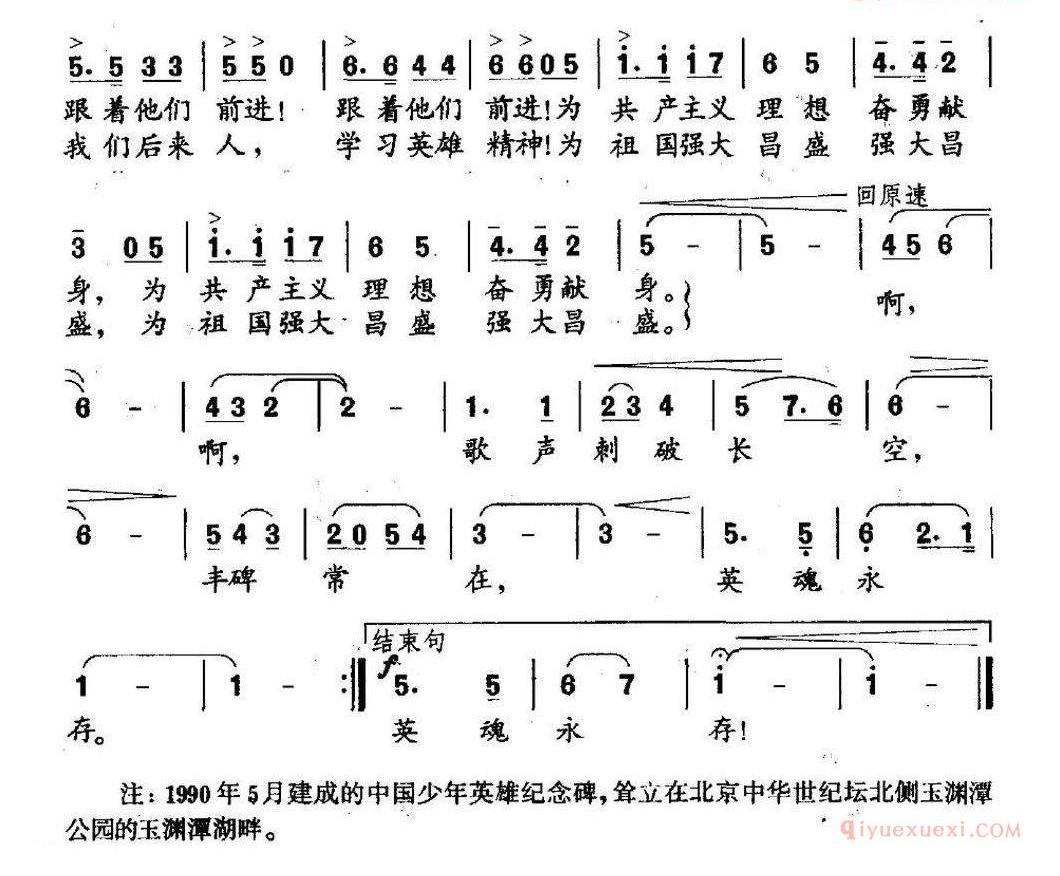 5. 5 3 3 | 5 5 0 | 6. 6 4 4 | 6 6 0 5 | 1. 1 1 7 | 6 5 | 4. 4 2 |
跟着他们 前进! 跟着他们 前进!为 共产主义 理想 奋勇献
我们后来 人, 学习英雄 精神!为 祖国强大 昌盛 强大昌
回原速
3 0 5 | 1. 1 1 7 | 6 5 | 4. 4 2 | 5 - | 5 - | 4 5 6 |
身, 为 共产主义 理想 奋勇献 身。 啊,
盛, 为 祖国强大 昌盛 强大昌 盛。
6 - | 4 3 2 | 2 - | 1. 1 | 2 3 4 | 5 7. 6 | 6 - |
啊, 歌声 刺破 长 空,
6 - | 5 4 3 | 2 0 5 4 | 3 - | 3 - | 5. 5 | 6 2. 1 |
丰碑 常 在, 英魂 永
结束句
1 - | 1 - :‖ f 5. 5 | 6 7 | 1 - | 1 - ‖
存。 英魂 永 存!
注: 1990 年 5 月建成的中国少年英雄纪念碑,耸立在北京中华世纪坛北侧玉渊潭
公园的玉渊潭湖畔。
qiyuexuexi.COM